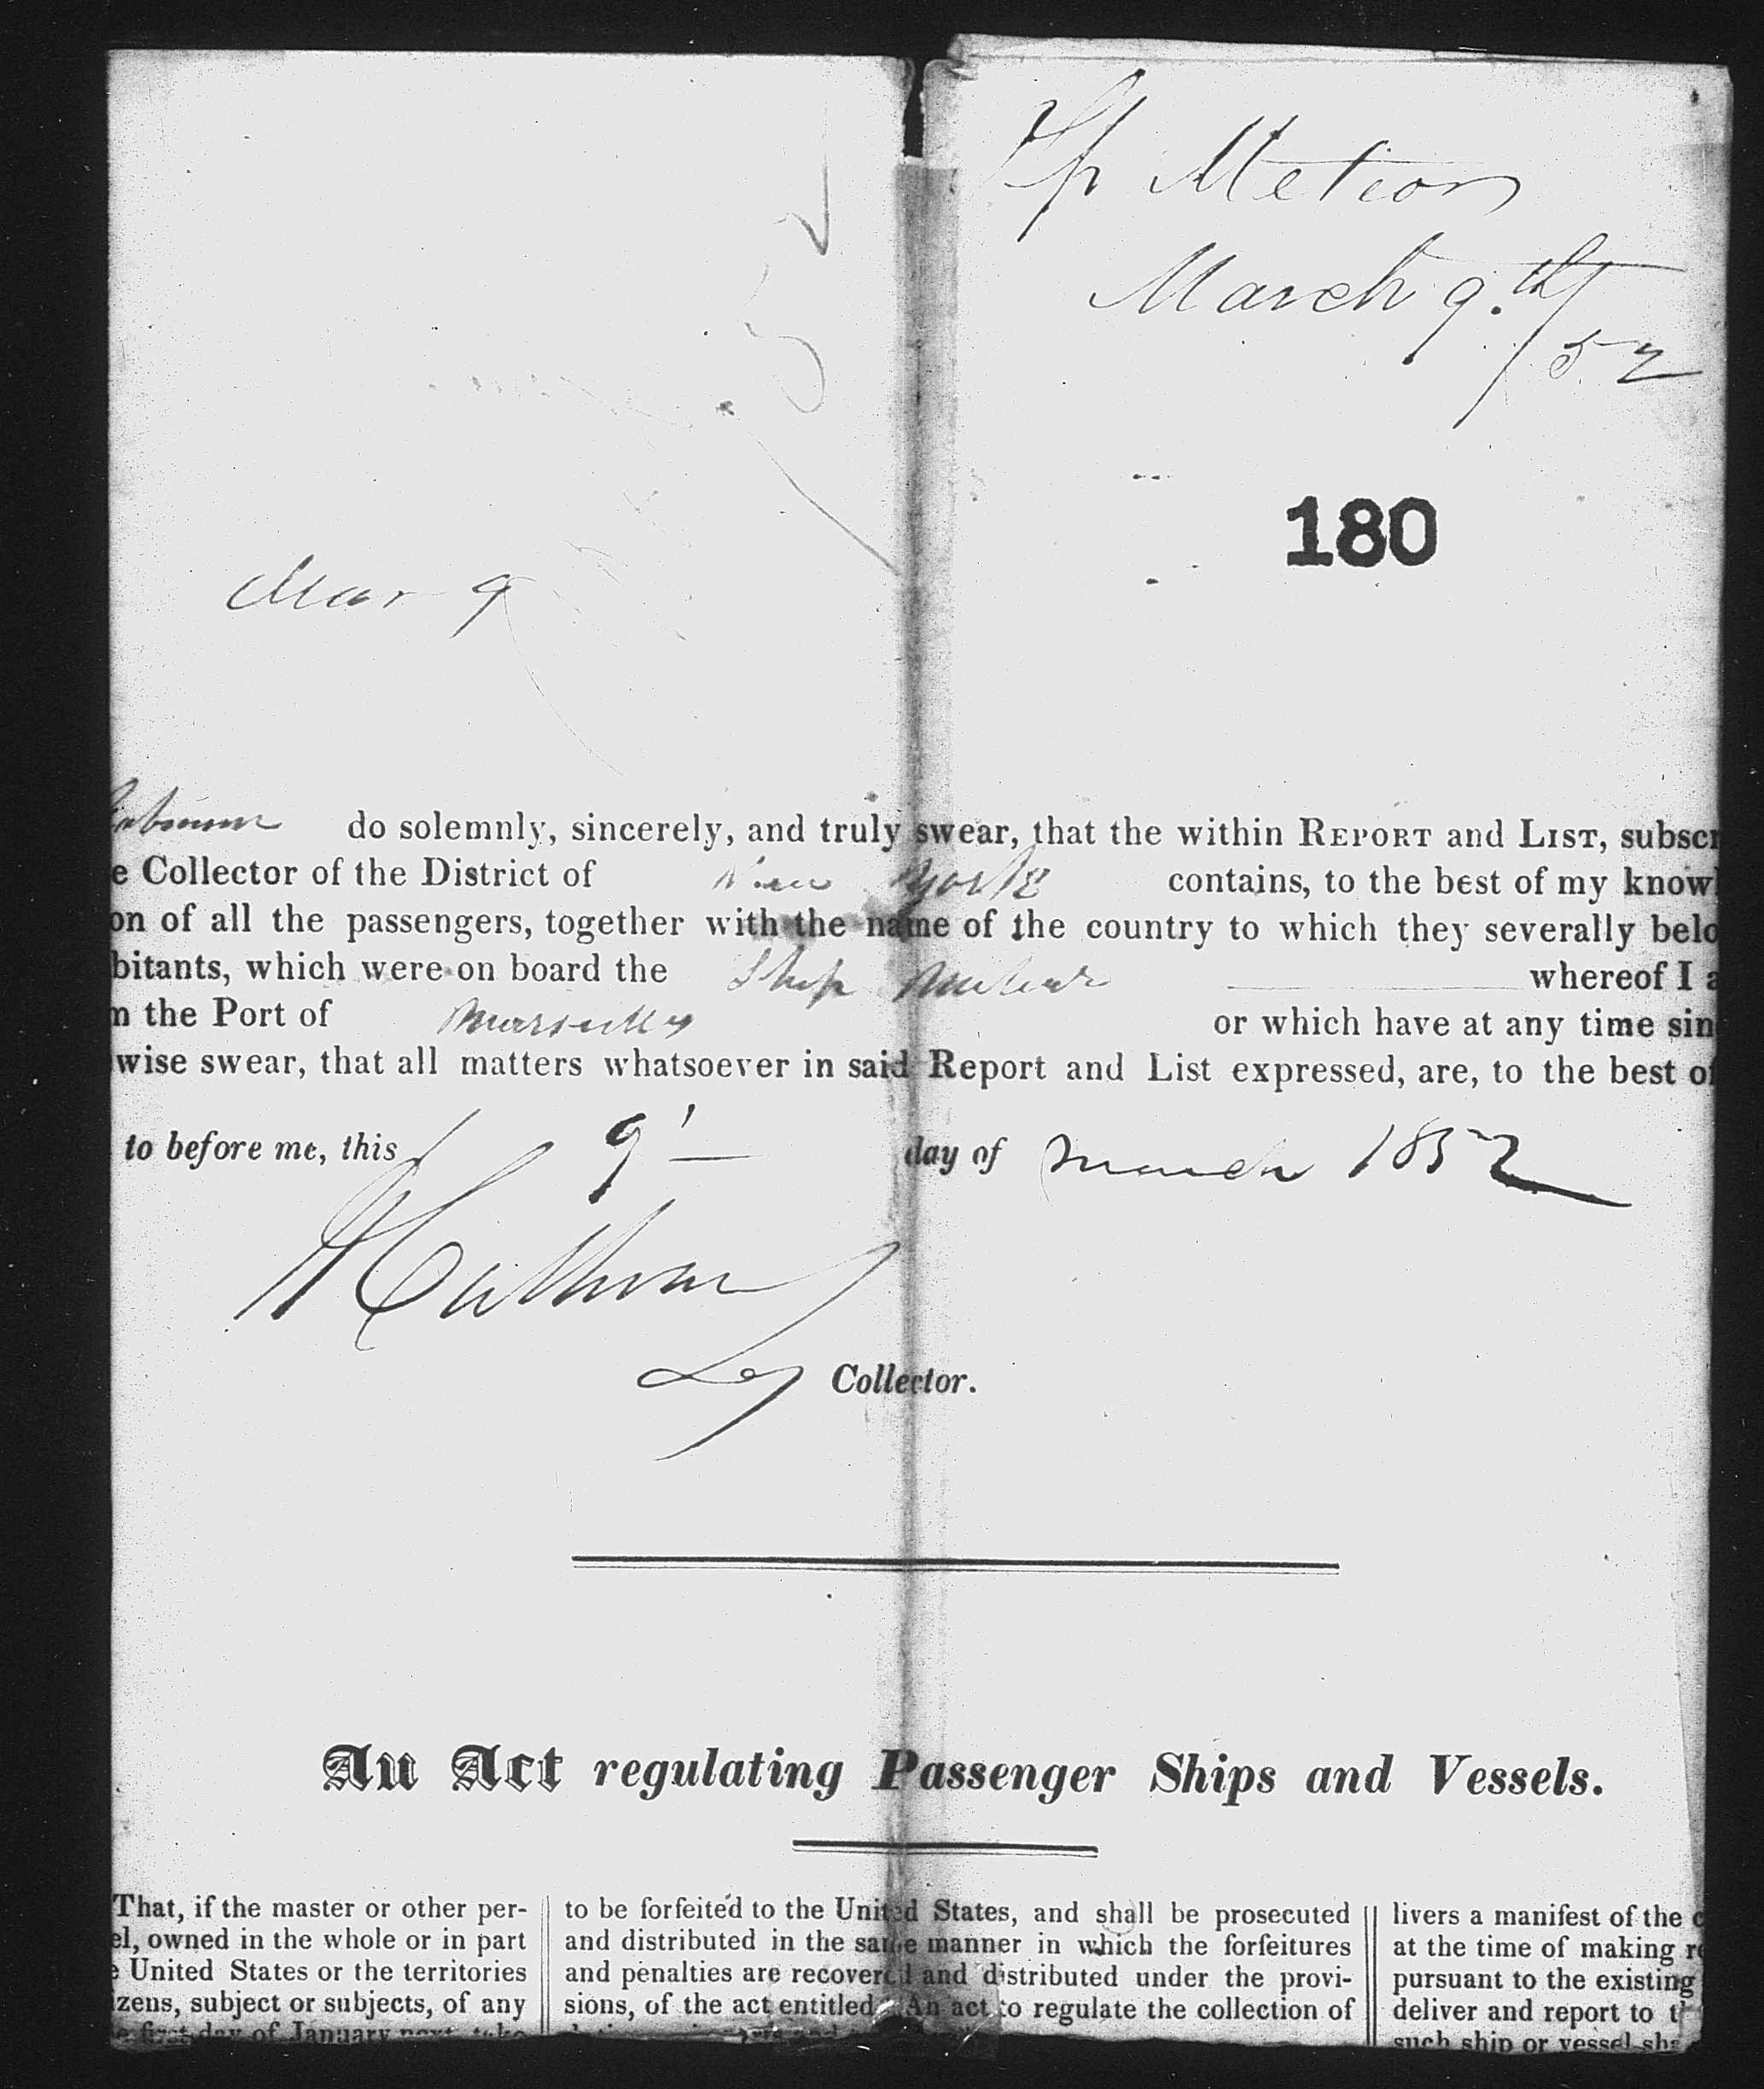 Sp Meteor
March 9.th/52
180
Mar 9
do solemnly, sincerely, and truly swear, that the within REPORT and LIST, subscr
e Collector of the District of New York contains, to the best of my know
on of all the passengers, together with the name of the country to which they severally belo
bitants, which were on board the Ship Meteor whereof I a
m the Port of Marseilles or which have at any time sin
wise swear, that all matters whatsoever in said Report and List expressed, are, to the best of
to before me, this 9' day of March 1852
Dep Collector.
An Act regulating Passenger Ships and Vessels.
That, if the master or other per-
el, owned in the whole or in part
e United States or the territories
zens, subject or subjects, of any
e first day of January next, take
to be forfeited to the United States, and shall be prosecuted
and distributed in the same manner in which the forfeitures
and penalties are recovered and distributed under the provi-
sions, of the act entitled An act to regulate the collection of
livers a manifest of the c
at the time of making re
pursuant to the existing
deliver and report to t
such ship or vessel sha